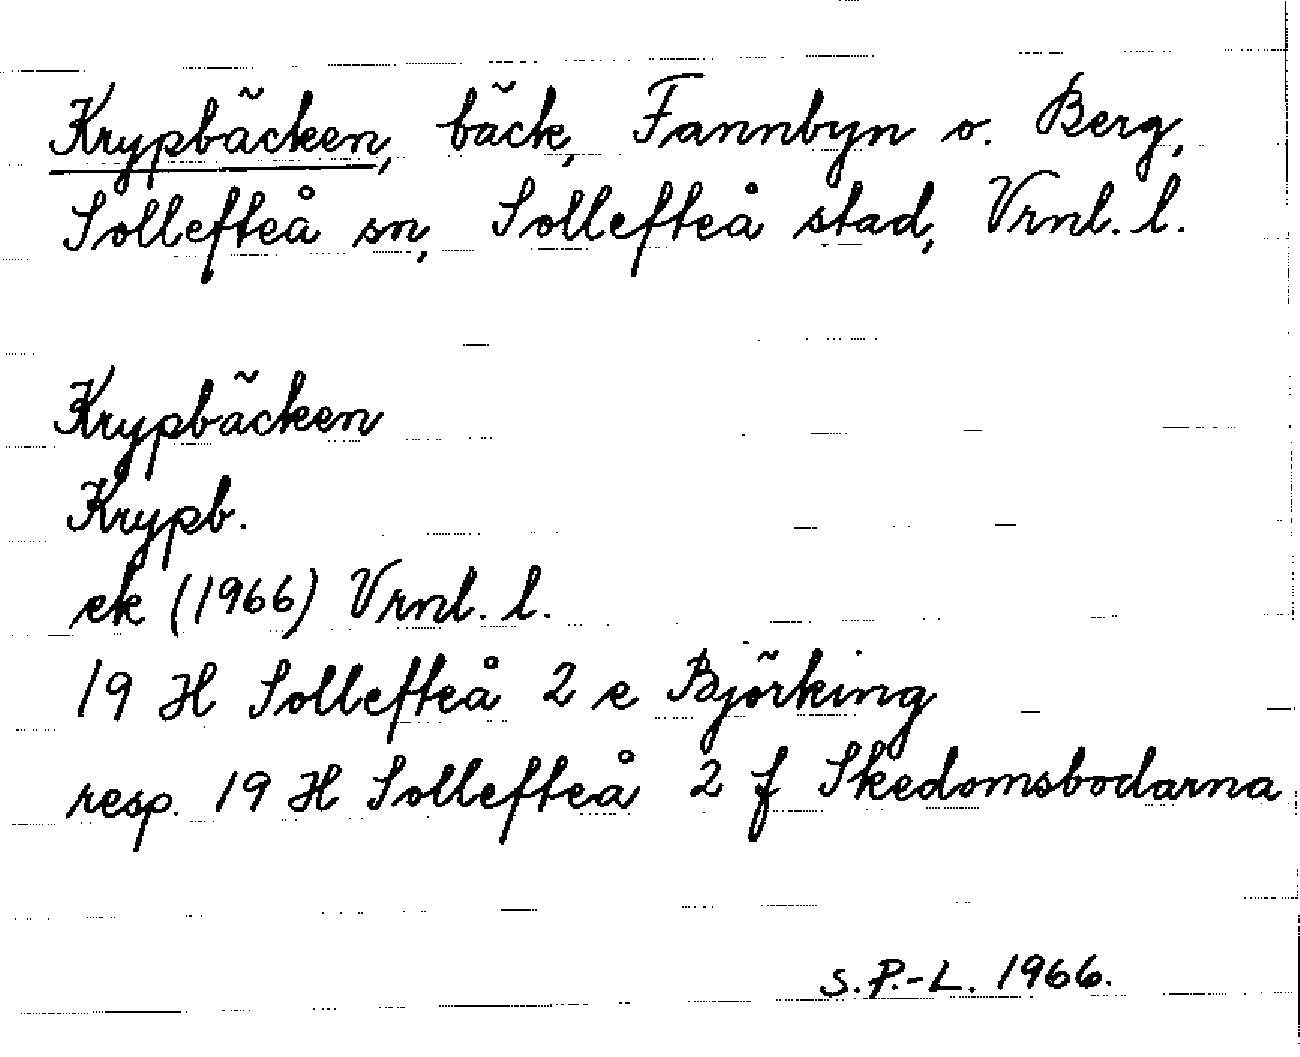 Krypbäcken, bäck, Fannbyn o. Berg,
Sollefteå sn, Sollefteå stad, Vrnl. l.
Krypbäcken
Krypb.
ek (1966) Vrnl. l.
19 H Sollefteå 2 e Björking
resp. 19 H Sollefteå 2 f Skedomsbodarna
S.P.-L. 1966.